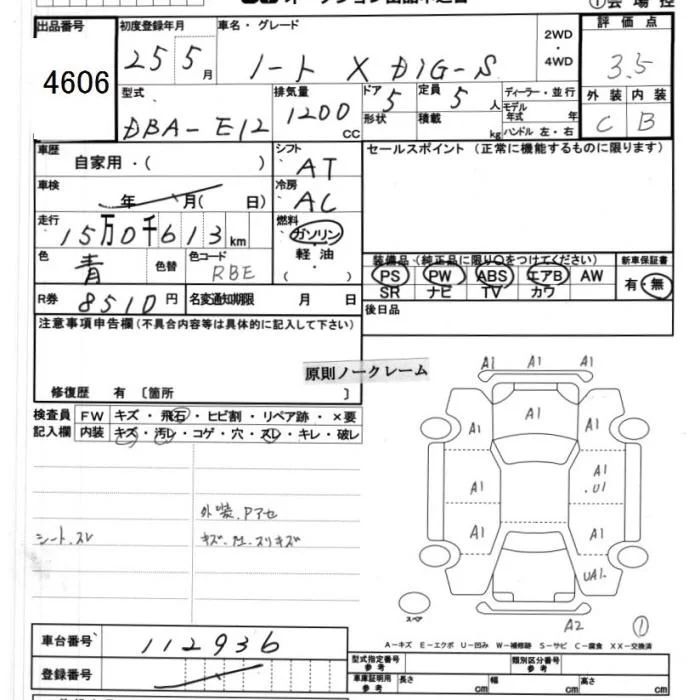 ①会場控
出品番号 初度登録年月 車名・グレード 評価点
4606 25 5月 ノート X DIG-S 2WD・4WD 3.5
型式 排気量 ドア 定員 ディーラー・並行 外装 内装
DBA-E12 1200cc 5 5人 モデル年式 年 C B
形状 積載 kg ハンドル 左・右
車歴 シフト セールスポイント (正常に機能するものに限ります)
自家用・( ) AT
車検 冷房
年 月( 日) AC
走行 燃料
15万0千613km ガソリン
色 色替 色コード 軽油・ 装備品・(純正品に限り○をつけてください) 新車保証書
青 RBE ( ) PS PW ABS エアB AW 有・無
SR ナビ TV カワ
R券 8510円 名変通知期限 月 日 後日品
注意事項申告欄(不具合内容等は具体的に記入して下さい)
原則ノークレーム
修復歴 有 〔箇所 〕
検査員 FW キズ・飛石・ヒビ割・リペア跡・×要
記入欄 内装 キズ・汚レ・コゲ・穴・スレ・キレ・破レ
外装、Pアセ
シート、スレ
A1 A1 A1
A1
A1 A1
A1
A1 .U1
A1 A1
UA1.
スペア
A2 ①
A-キズ E-エクボ U-凹み W-補修跡 S-サビ C-腐食 XX-交換済
車台番号 112936
登録番号
型式指定番号 参考 類別区分番号 参考
車庫証明用 参考 長さ cm 幅 cm 高さ cm